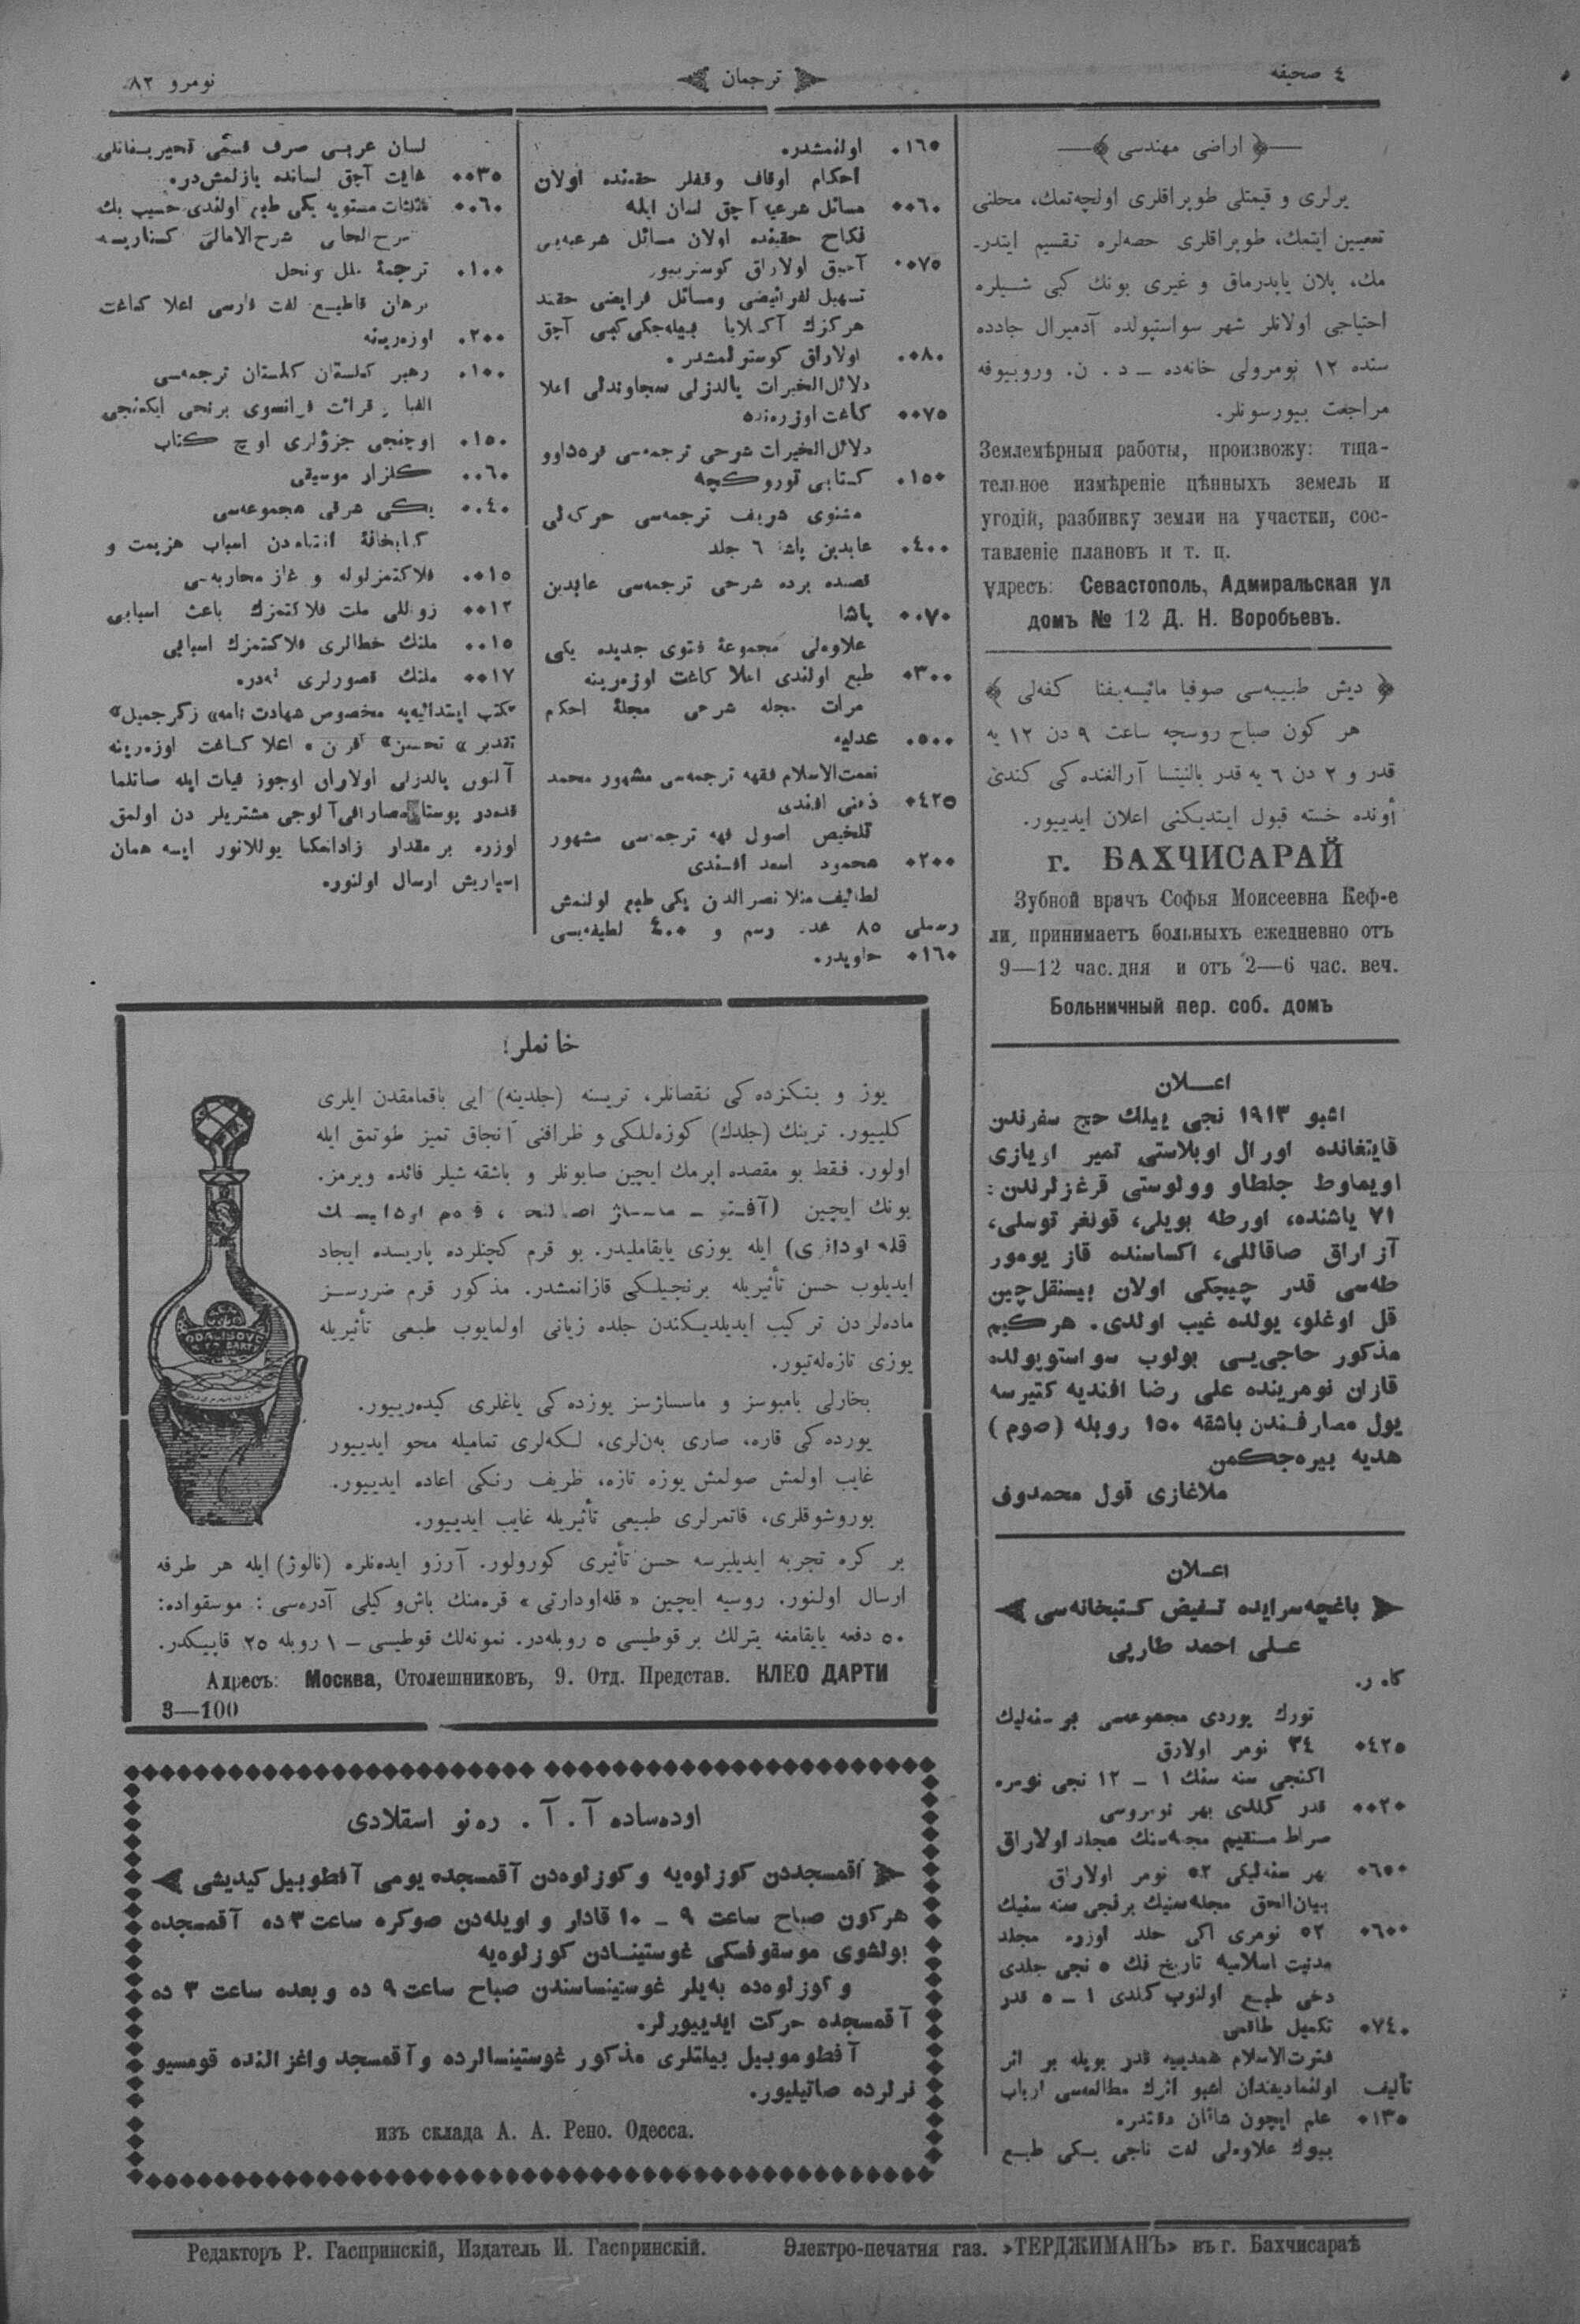 ٤ صحیفه
ترجمان
نومرو ٨٢
اراضی مهندسی
یرلری و قیمتلی طوپراقلری اولچه‌تمك، محلنی
تعیین ایتمك، طوپراقلری حصه‌لره تقسیم ایتدر-
مك، پلان یاپدرماق و غیری بونك کبی شیلره
احتیاجی اولانلر شهر سواستپولده آدمیرال جادده
سنده ١٢ نومرولی خانه‌ده – د . ن. وروبیوفه
مراجعت بیورسونلر.
Землемѣрныя работы, произвожу: тща-
тельное измѣреніе цѣнныхъ земель и
угодій, разбивку земли на участки, сос-
тавленіе плановъ и т. ц.
удресъ: Севастополь, Адмиральская ул
домъ № 12 Д. Н. Воробьевъ.
دیش طبیبه‌سی صوفیا مائیسه‌یفنا کفه‌لی
هر کون صباح روسچه ساعت ٩ دن ١٢ یه
قدر و ٢ دن ٦ یه قدر بالنیتسا آرالغنده کی کندی
أونده خسته قبول ایتدیکنی اعلان ایدییور.
г. БАХЧИСАРАЙ
Зубной врачъ Софья Моисеевна Кеф-е
ли, принимаетъ больныхъ ежедневно отъ
9—12 час. дня и отъ 2—6 час. веч.
Больничный пер. соб. домъ
اعـــلان
اشبو ١٩١٣ نجی ییلك حج سفرندن
قایتغانده اورال اوبلاستی تمیر اریازی
اویماوط جلطاو وولوستی قرغزلرندن:
٧١ یاشنده، اورطه بویلی، قونغر توسلی،
آز اراق صاقاللی، اکساسنده قاز یومور
طه‌سی قدر چیچکی اولان بیسنقل‌چین
قل اوغلو، یولده غیب اولدی. هرکیم
مذکور حاجی‌یی بولوب سواستوپولده
قازان نومرینده علی رضا افندیه کتیرسه
یول مصارفندن باشقه ١٥٠ روبله (صوم)
هدیه بیره‌جکمن
ملاغازی قول محمدوف
اعـلان
باغچه‌سرایده تفیض کتبخانه‌سی
عـلی احمد طارپی
كا. ر.
تورك یوردی مجموعه‌سی بر سنه‌لیك
٠٤٢٥ ٣٤ نومر اولارق
اکنجی سنه سنك ١ – ١٢ نجی نومره
٠٠٢٠ قدر کلدی بهر نومروسی
صراط مستقیم مجله‌سنك مجلد اولاراق
٠٦٥٠ بهر سنه‌لیکی ٥٢ نومر اولاراق
بیان‌الحق مجله‌سنیك برنجی سنه سنیك
٠٦٠٠ ٥٢ نومری اکی جلد اوزره مجلد
مدنیت اسلامیه تاریخ نك ٥ نجی جلدی
دخی طبع اولنوب کلدی ١ – ٥ قدر
٠٧٤٠ تکمیل طاقمی
فترت‌الاسلام همدییه قدر بویله بر اثر
تألیف اولنمادیغندان اشبو اثرك مطالعه‌سی ارباب
٠١٣٥ علم ایچون شایان دقتدر.
بیوك علاوه‌لی لغت ناجی یکی طبع
٠١٦٥ اولنمشدر.
احکام اوقاف وقفلر حقنده اولان
٠٠٦٠ مسائل شرعیه آچق لسان ایله
نکاح حقنده اولان مسائل شرعیه‌یی
٠٠٧٥ آچیق اولاراق کوستریبور
تسهیل لفرائیضی ومسائل فرایضی حقند
هرکزك آکلایا بیله‌جکی‌کبی آچق
٠٠٨٠ اولاراق کوسترلمشدر.
دلائل‌الخیرات یالدزلی سجاوندلی اعلا
٠٠٧٥ کاغت اوزرنده
دلائل‌الخیرات شرحی ترجمه‌سی قره‌داوو
٠١٥٠ کتابی تورو‌کچه
مثنوی شریف ترجمه‌سی حرکه‌لی
٠٤٠٠ عابدین پاشا ٦ جلد
قصده برده شرحی ترجمه‌سی عابدین
٠٠٧٠ پاشا
علاوه‌لی مجموعهٔ فتوی جدیده یکی
٠٣٠٠ طبع اولندی اعلا کاغت اوزه‌رینه
مرات مجله شرحی مجلهٔ احکام
٠٥٠٠ عدلیه
نعمت‌الاسلام فقهه ترجمه‌سی مشهور محمد
٠٤٢٥ ذهنی افندی
تلخیص اصول فهه ترجمه‌سی مشهور
٠٢٠٠ محمود اسعد افندی
لطائیف منلا نصرالدن یکی طبع اولنمش
رسملی ٨٥ عدد رسم و ٤٠٠ لطیفه‌یسی
٠١٦٠ حاویدر.
لسان عربی صرف قسمی
٠٠٣٥ غایت آچق لسانده یازلمش‌در.
٠٠٦٠ مثلثات مستویه یکی طبع اولندی حسیب بك
شرح‌الامالی
٠١٠٠ ترجمهٔ ملل ونحل
برهان قاطیع لغت فارسی اعلا کاغت
٠٢٠٠ اوزه‌رینه
٠١٠٠ رهبر کلستان کلستان ترجمه‌سی
الفبا و قرائت فرانسوی برنجی ایکنجی
٠١٥٠ اوچنجی جزؤلری اوچ کتاب
٠٠٦٠ کلزار موسیقی
٠٠٤٠ یکی شرقی مجموعه‌سی
اسباب هزیمت و
٠٠١٥ فلاکتمز لوله و غاز محاربه‌سی
٠٠١٢ زواللی ملت فلاکتمزك باعث اسبابی
٠٠١٥ ملتك خطالری فلاکتمزك اسبابی
٠٠١٧ ملتك قصورلری نه‌در.
مکتب ابتدائیه‌یه مخصوص شهادت نامه» زکرجمیل»
تقدیر» تحسین» آفرین. اعلا کاغت اوزه‌رینه
آلتون یالدزلی اولاراق اوجوز فیات ایله صاتلما
قده‌در پوستا مصارفی آلوجی مشتریلر دن اولمق
اوزره بر مقدار زاداتکا یوللانور ایسه همان
اسپاریش ارسال اولنور.
خانملر!
یوز و بتکزده کی نقصانلر، تریسنه (جلدینه) ایی باقمامقدن ایلری
کلییور. ترینك (جلدك) کوزه‌لکی و ظرافنی آنجاق تمیز طوتمق ایله
اولور. فقط بو مقصده ایرمك ایچین صابونلر و باشقه شیلر فائده ویرمز.
بونك ایچین
ایله یوزی یایقاملیدر. بو قرم کچنلرده پاریسده ایجاد
ایدیلوب حسن تأثیریله برنجیلکی قازانمشدر. مذکور قرم ضررسز
ماده‌لر دن ترکیب ایدیلدیکندن جلده زیانی اولمایوب طبعی تأثیریله
یوزی تازه‌له‌تیور.
بخارلی بامبوسز و ماسساژسز یوزده کی یاغلری کیده‌رییور.
یورده کی قاره، صاری به‌نلری، لکه‌لری تمامیله محو ایدییور
غایب اولمش صولمش یوزه تازه، ظریف رنکی اعاده ایدییور.
بوروشوقلری، قاتمرلری طبیعی تأثیریله غایب ایدییور.
بر کره تجربه ایدیلیرسه حسن تأثیری کورولور. آرزو ایده‌نلره (نالوژ) ایله هر طرفه
ارسال اولنور. روسیه ایچین « قله‌اودارتی » قره‌منك باش‌وکیلی آدره‌سی : موسقواده:
٥٠ دفعه یایقامغه یترلك بر قوطیسی ٥ روبله‌در. نمونه‌لك قوطیسی – ١ روبله ٢٥ قاپیکدر.
Адресъ: Москва, Столешниковъ, 9. Отд. Представ. КЛЕО ДАРТИ
3—100
اوده‌ساده آ . آ . ره‌نو اسقلادی
آقمسجددن کوزلوه‌یه و کوزلوه‌دن آقمسجده یومی آفطوبیل کیدیشی
هرکون صباح ساعت ٩ – ١٠ قادار و اویله‌دن صوکره ساعت ٣ ده آقمسجده
بولشوی موسقوفسکی غوستینسادن کوزلوه‌یه
و کوزلوه‌ده به‌یلر غوستینساسندن صباح ساعت ٩ ده و بعده ساعت ٣ ده
آقمسجده حرکت ایدییورلر.
آفطوموبیل بیلتلری مذکور غوستینسالرده و آقمسجد واغزالنده قومسیو
نرلرده صاتیلیور.
изъ склада А. А. Рено. Одесса.
Редакторъ Р. Гаспринскій, Издатель И. Гаспринскій.
Электро-печатня газ. »ТЕРДЖИМАНЪ» въ г. Бахчисараѣ